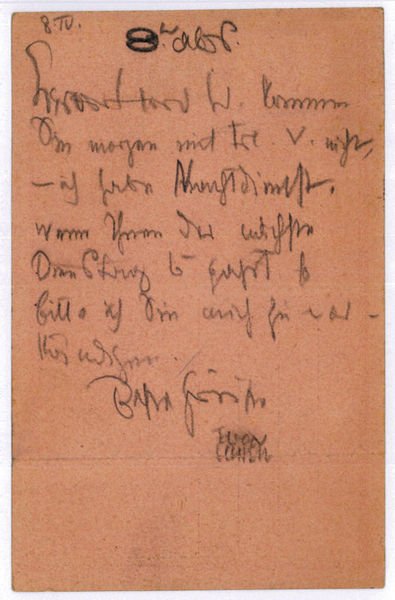 8. IV.
8 abds.
kommen
Sie morgen mit Frl. V. nicht,
– ich habe Nachtdienst.
wenn Ihnen der nächste
Dienstag passt so
bitte ich Sie mich zu ver-
ständigen.
Beste Grüße